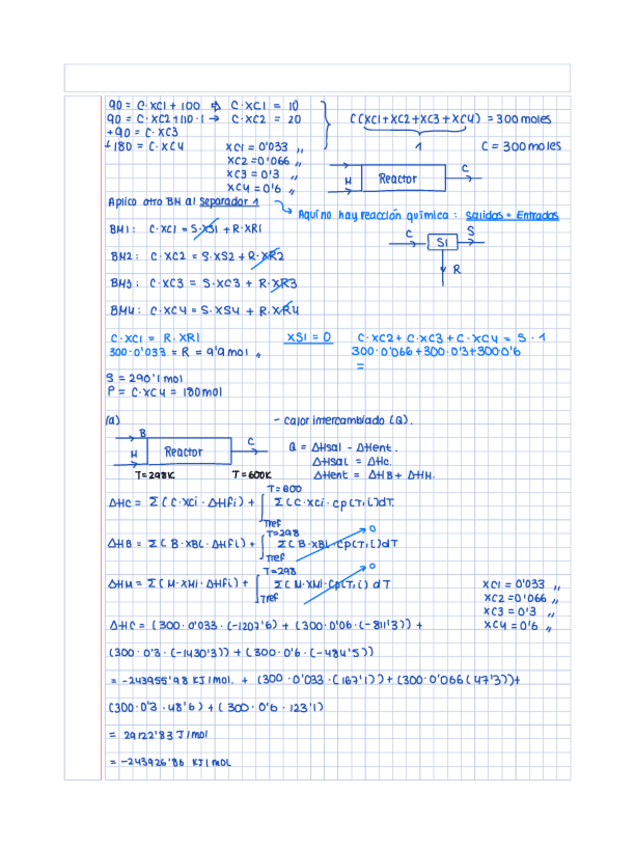 90 = C·XC1 + 100 ⇒ C·XC1 = 10
90 = C·XC2 + 110·1 → C·XC2 = 20
+90 = C·XC3
+180 = C·XC4
C(XC1+XC2+XC3+XC4) = 300 moles
1 C = 300 moles
XC1 = 0'033 "
XC2 = 0'066 "
XC3 = 0'3 "
XC4 = 0'6 "
M Reactor C
Aplico otro BM al Separador 1
Aquí no hay reacción química: Salidas = Entradas
BM1: C·XC1 = S·XS1 + R·XR1
C S1 S
R
BM2: C·XC2 = S·XS2 + R·XR2
BM3: C·XC3 = S·XC3 + R·XR3
BM4: C·XC4 = S·XS4 + R·XR4
C·XC1 = R·XR1 XS1 = 0 C·XC2 + C·XC3 + C·XC4 = S·1
300·0'033 = R = 9'9 mol " 300·0'066+300·0'3+300·0'6
=
S = 290'1 mol
P = C·XC4 = 180 mol
(a) - Calor intercambiado (Q).
B
M Reactor C
T=298K T=600K
Q = ΔHsal - ΔHent.
ΔHsal = ΔHc.
ΔHent = ΔHB + ΔHM.
ΔHC = Σ(C·XCi·ΔHfi) + ∫ T=600 Tref Σ(C·XCi·Cp(T,i)dT.
ΔHB = Σ(B·XBi·ΔHfi) + ∫ T=298 Tref Σ(B·XBi·Cp(T,i)dT 0
ΔHM = Σ(M·XMi·ΔHfi) + ∫ T=298 Tref Σ(M·XMi·Cp(T,i) dT 0
XC1 = 0'033 "
XC2 = 0'066 "
XC3 = 0'3 "
XC4 = 0'6 "
ΔHC = (300·0'033·(-1207'6) + (300·0'06·(-811'3)) +
(300·0'3·(-1430'3)) + (300·0'6·(-484'5))
= -243955'98 KJ/mol. + (300·0'033·(167'1)) + (300·0'066(47'3))+
(300·0'3·48'6) + (300·0'6·123'1)
= 29122'83 J/mol
= -243926'86 KJ/mol